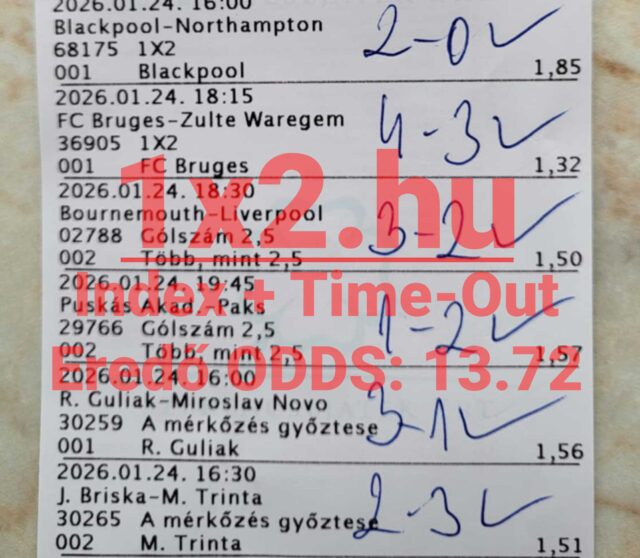 2026.01.24. 16:00
Blackpool-Northampton
68175 1X2
2-0 ✓
001 Blackpool 1,85
2026.01.24. 18:15
FC Bruges-Zulte Waregem
36905 1X2
4-3 ✓
001 FC Bruges 1,32
1x2.hu
2026.01.24. 18:30
Bournemouth-Liverpool
02788 Gólszám 2,5
3-2 ✓
002 Több, mint 2,5 1,50
Index + Time-Out
2026.01.24. 19:45
Puskás Akad.-Paks
29766 Gólszám 2,5
1-2 ✓
002 Több, mint 2,5 1,57
Eredő ODDS: 13.72
2026.01.24. 16:00
R. Guliak-Miroslav Novo
30259 A mérkőzés győztese
3-1 ✓
001 R. Guliak 1,56
2026.01.24. 16:30
J. Briska-M. Trinta
30265 A mérkőzés győztese
2-3 ✓
002 M. Trinta 1,51